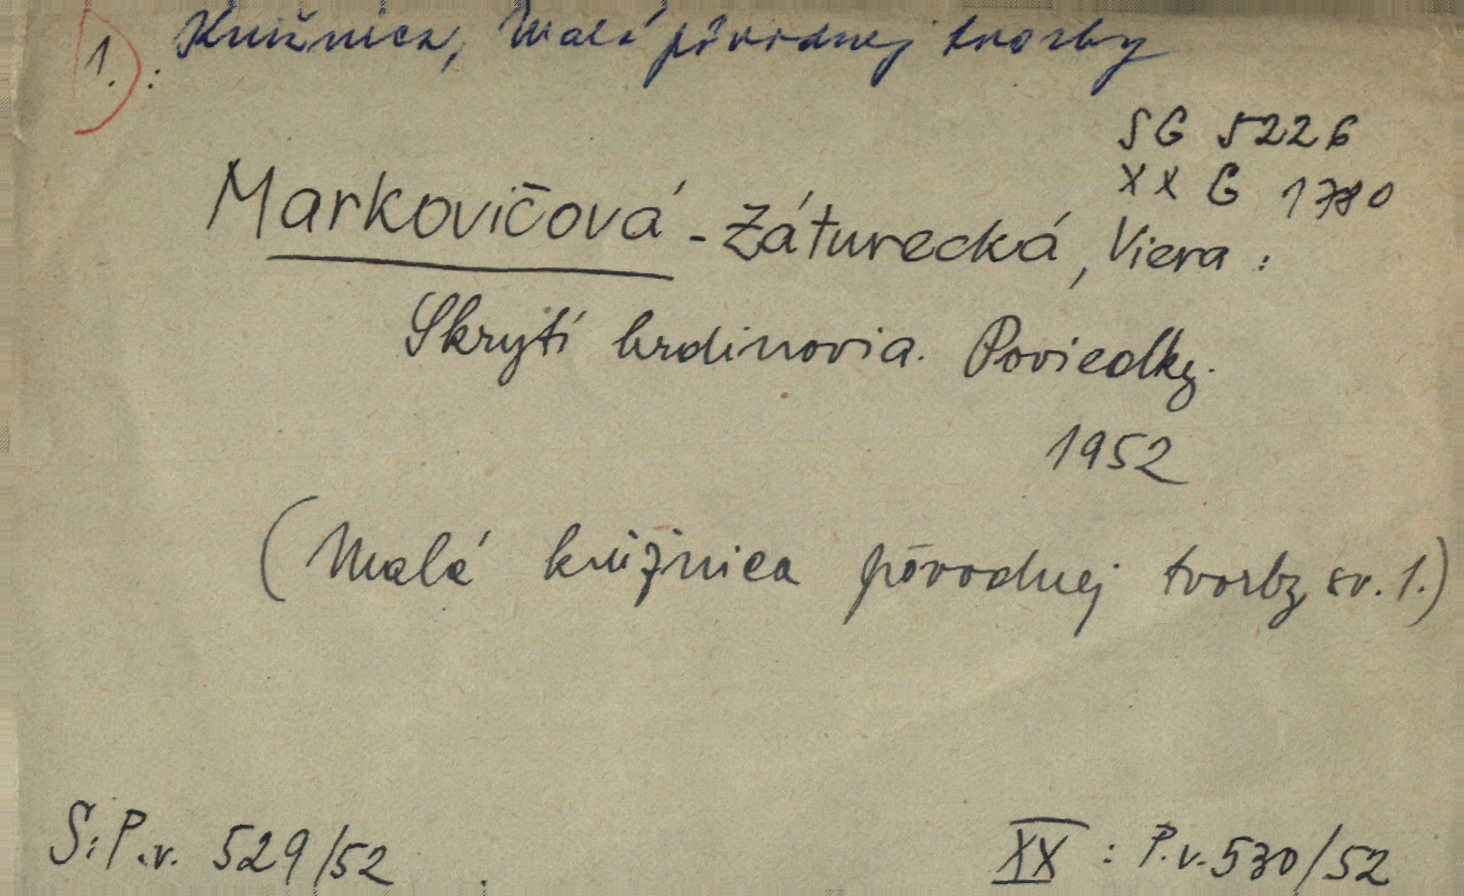 1. : Knižnica, Malá pôvodnej tvorby
SG 5226
XX G 1780
Markovičová - Záturecká, Viera :
Skrytí hrdinovia. Poviedky.
1952
(Malá knižnica pôvodnej tvorby sv. 1.)
S: P.v. 529/52
XX : P.v. 530/52